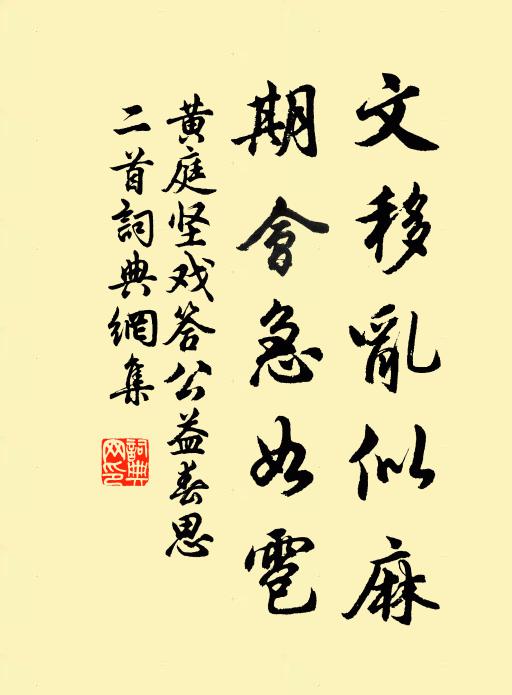 文移亂似麻
期會急如雹
黄庭坚戏答公益春思
二首詞典網集
詞典
网印